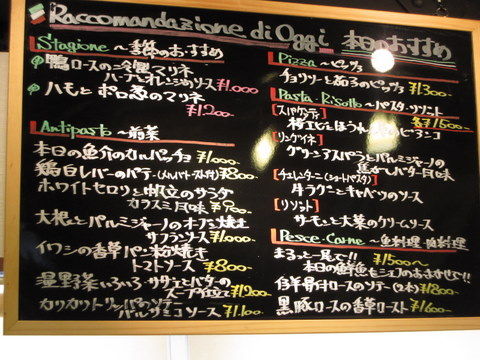 Raccomandazione di Oggi 本日のおすすめ
Stagione ～季節のおすすめ
鴨ロースの冷製マリネ
ハーブとオレンジのソース ¥1.000
ハモとポロ葱のマリネ
¥1.200
Antipasto ～前菜
本日の魚介のカルパッチョ ¥1.000-
鶏白レバーのパテ(メルバトースト付) ¥800-
ホワイトセロリと帆立のサラダ
カラスミ風味 ¥900-
大根とパルミジャーノのオーブン焼き
サフランソース ¥1.000-
イワシの香草パン粉焼き
トマトソース ¥800-
温野菜いろいろ サザエとバターの
スープ仕立て ¥1200-
カリカリトリッパのソテー
バルサミコソース ¥1.100-
Pizza ～ピッツァ
チョリソーと茄子のピッツァ ¥1300-
Pasta Risotto ～パスタ・リゾット
[スパゲティ] 各¥1600-
桜エビとほうれん
[リングイネ]
グリーンアスパラとパルミジャーノの
焦がしバター風味
(ショートパスタ)
牛ラグーとキャベツのソース
[リゾット]
サーモンと大葉のクリームソース
Pesce・Carne ～魚料理・肉料理
まるっと一尾で!! ¥1500～
本日の鮮魚をシェフのおまかせで!!
仔羊骨付ロースのソテー(2本) ¥1800-
黒豚ロースの香草ロースト ¥1600-